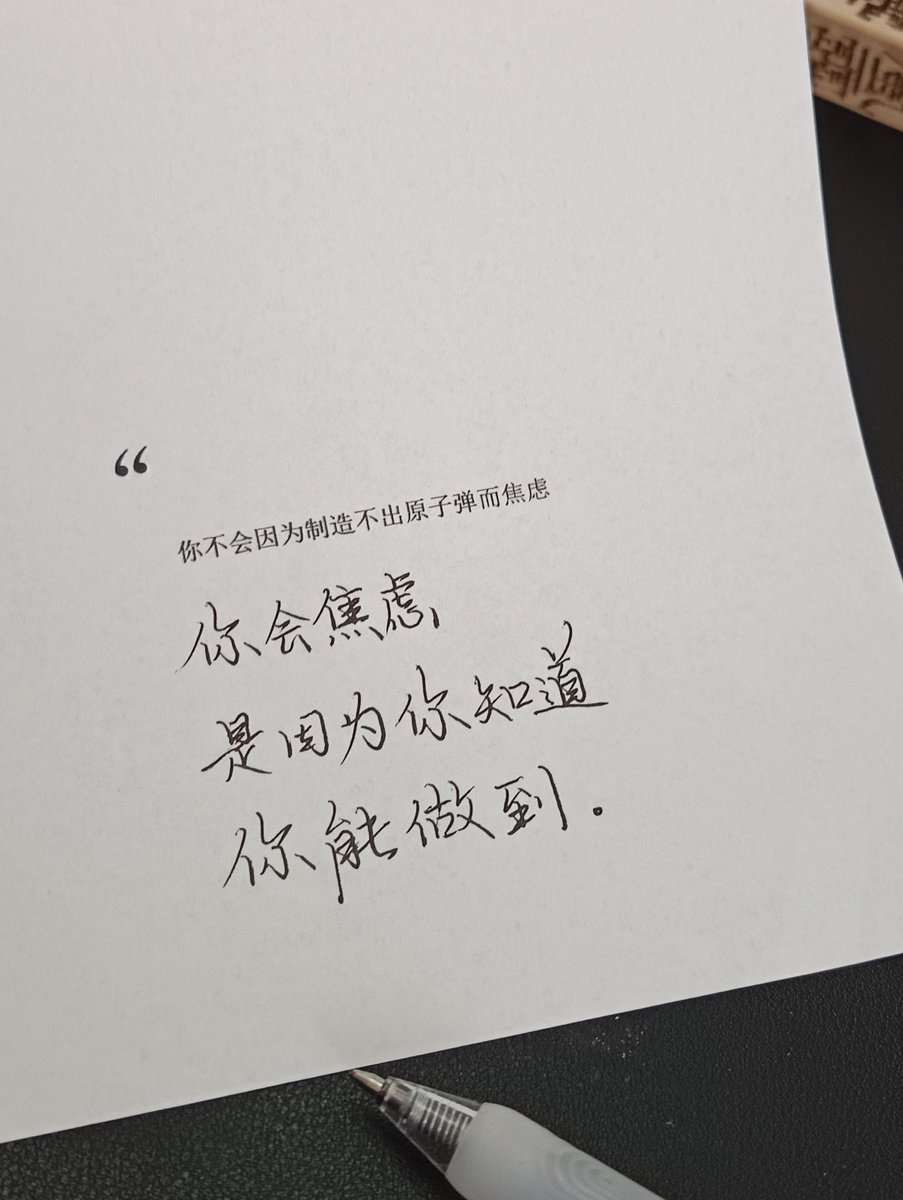 “
你不会因为制造不出原子弹而焦虑
你会焦虑
是因为你知道
你能做到.